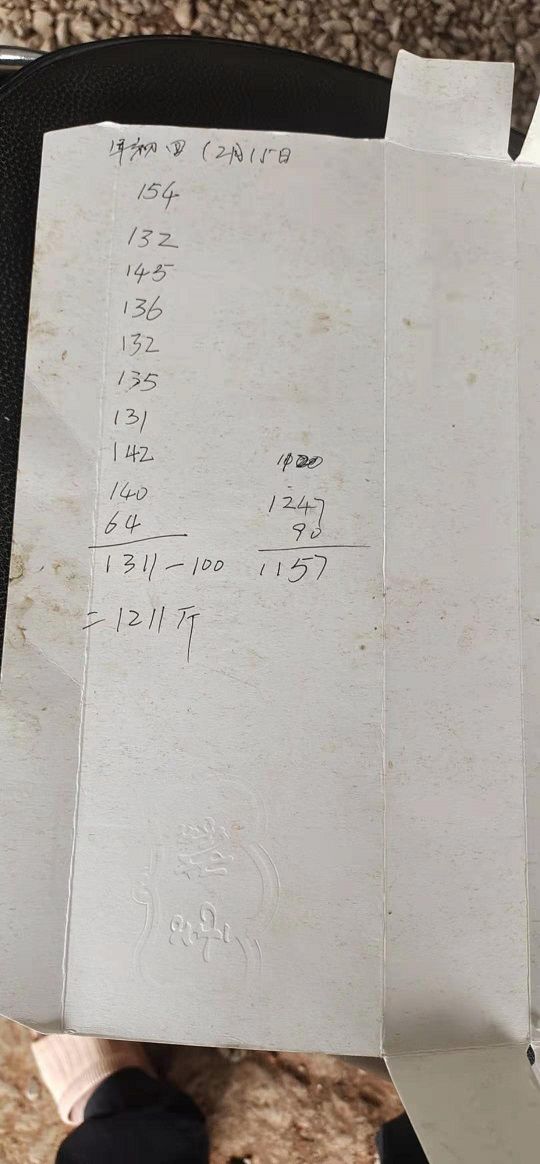 年初四 12月15日
154
132
145
136
132
135
131
142
140
64
1311-100
=1211斤
1247
90
1157